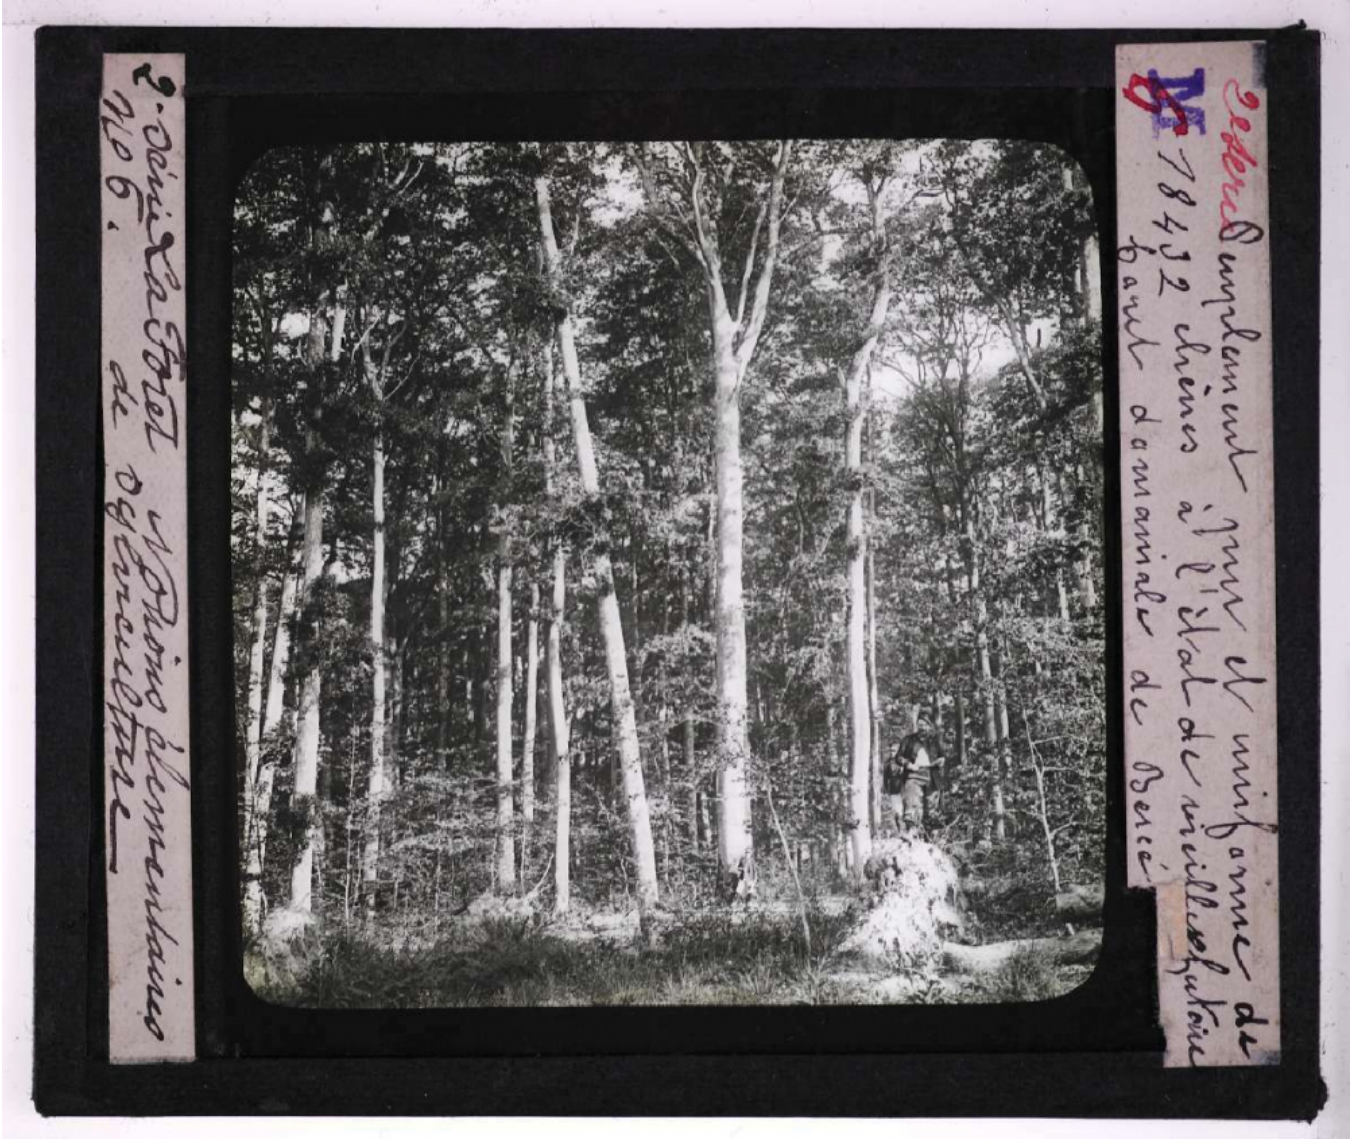 2e série La Forêt Notions élémentaires
No 6. de sylviculture
Peuplement pur et uniforme de
18432 chênes à l'état de vieille futaie
foret domaniale de Bercé